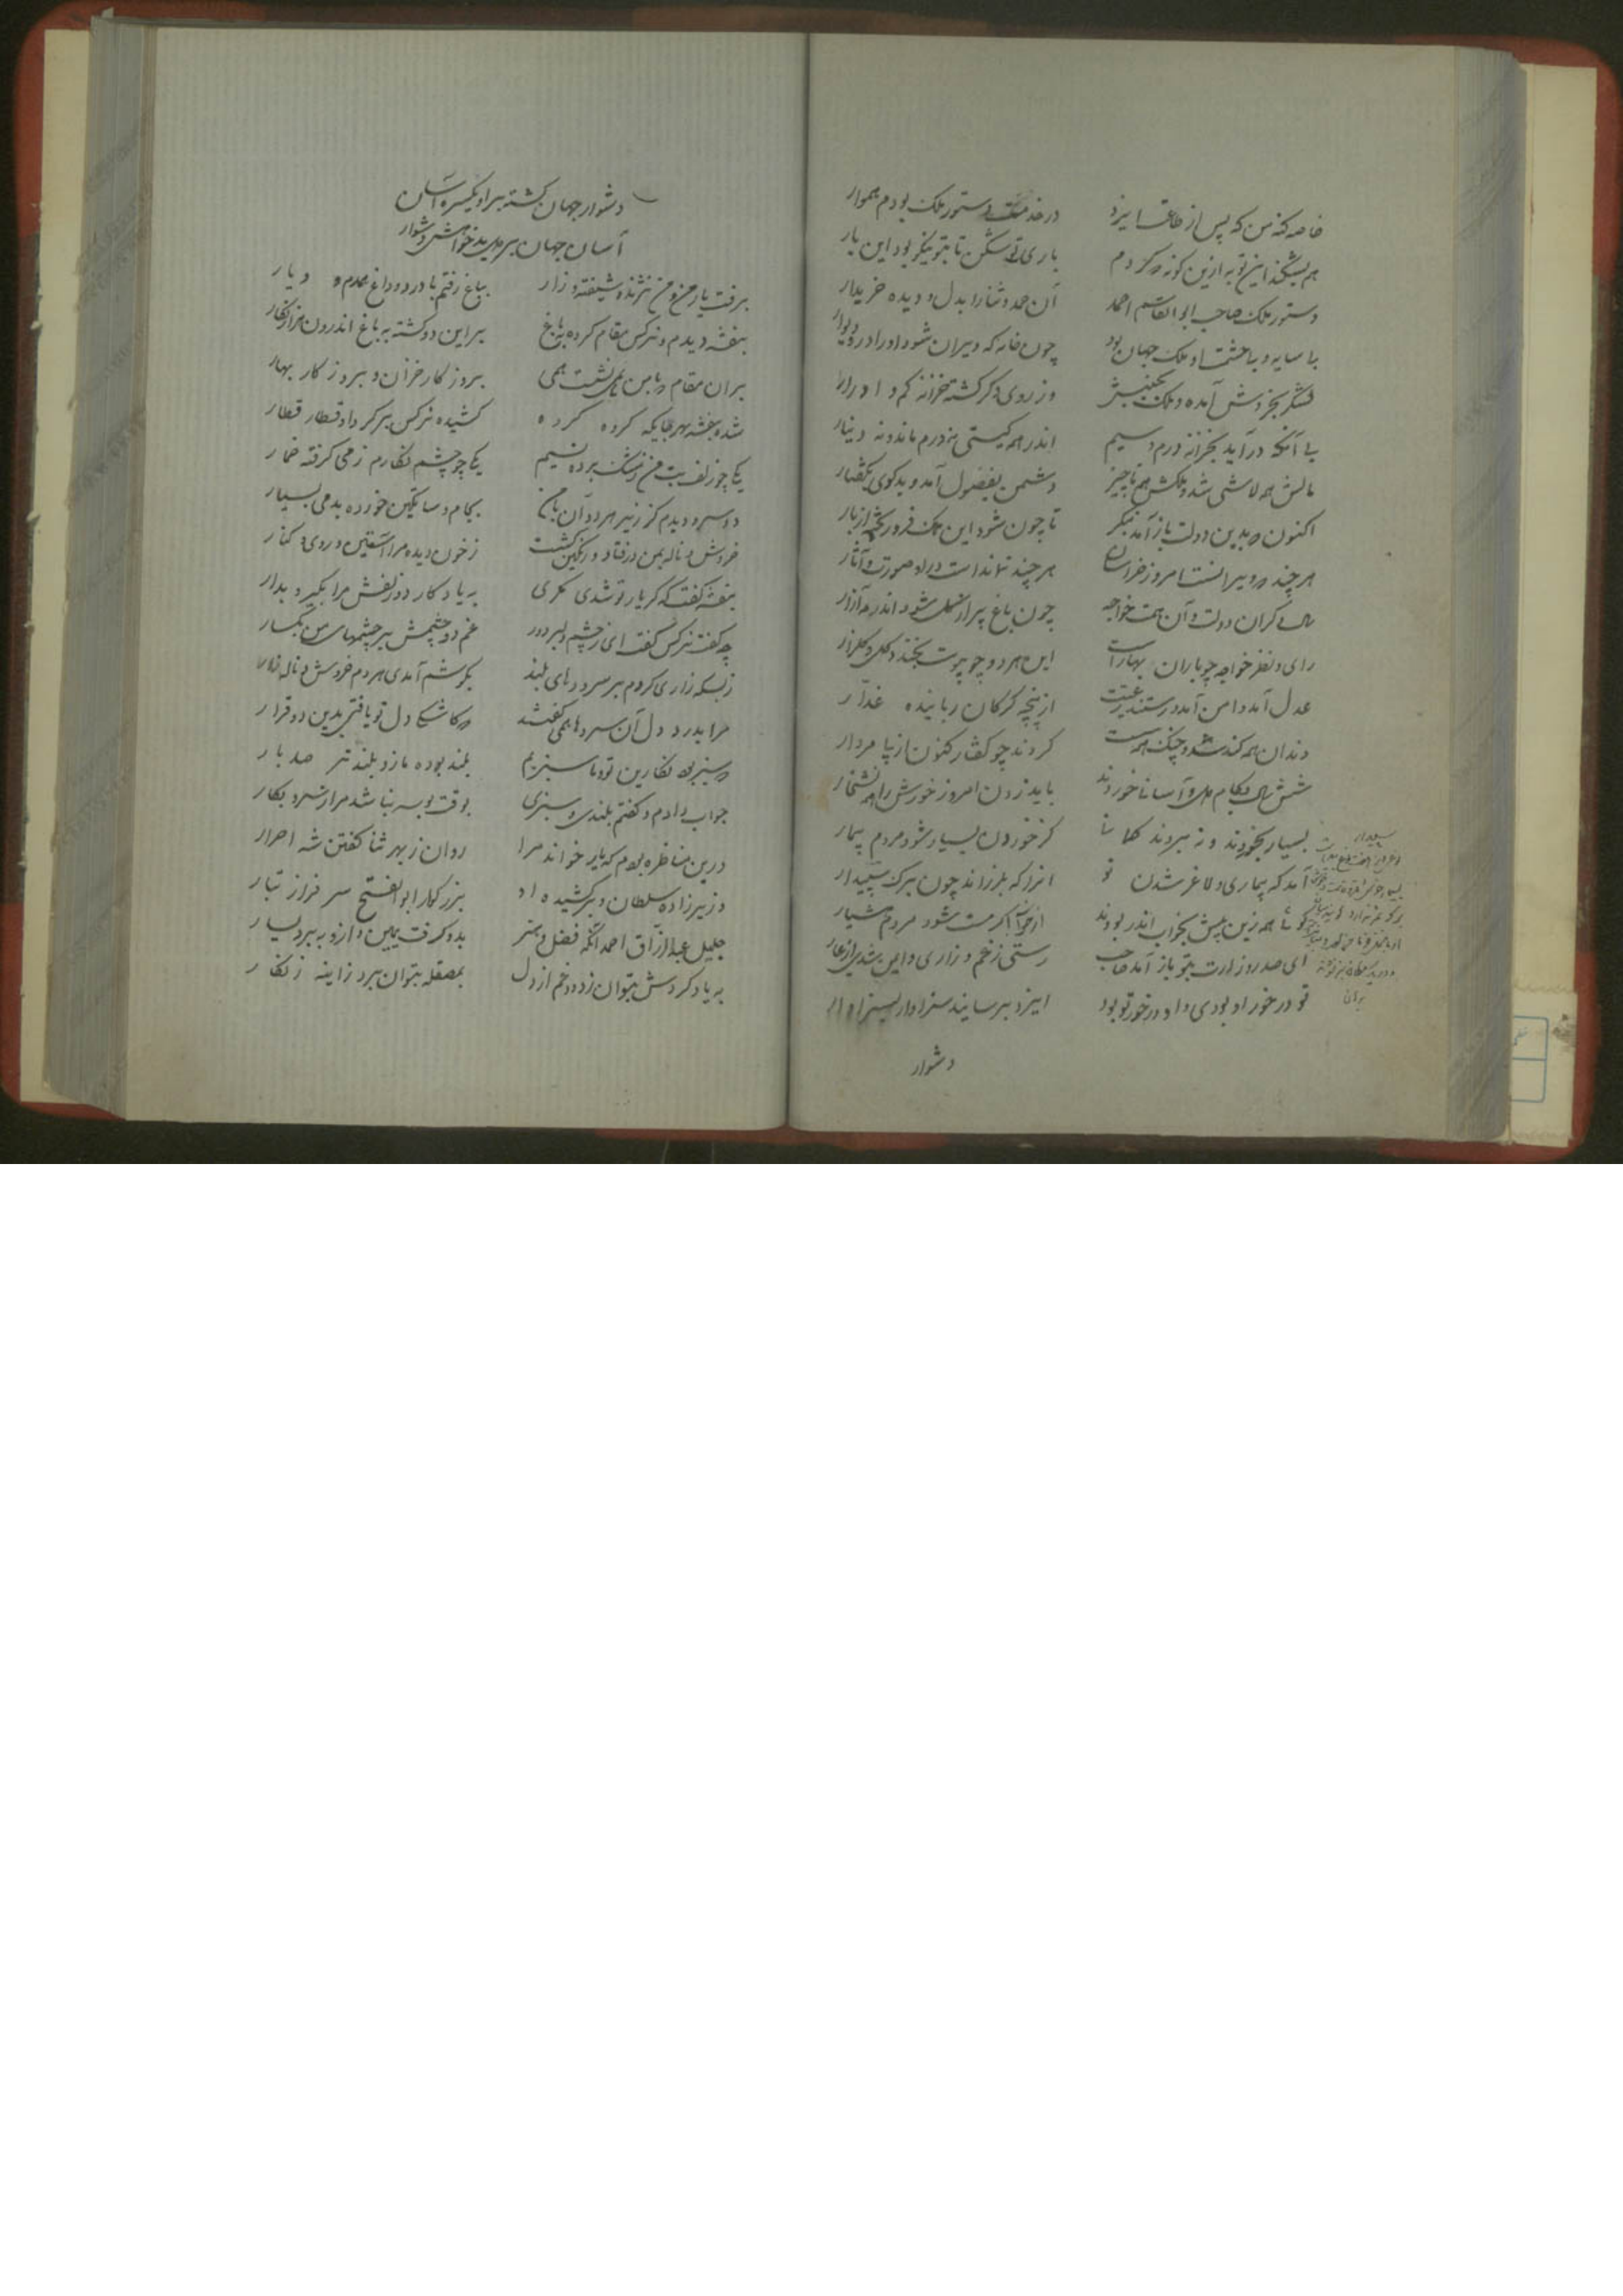 خاصه کنه من که پس از طاعت ایزد در خدمت دستور ملک بودم هموار
هم بشکند این توبه ازین گونه که کردم باری تو مشکن تا بتو نیکو بود این یار
دستور ملک صاحب ابوالقاسم احمد آن حمد و ثنا را بدل و دیده خریدار
با سایه و با حشمت او ملک جهان بود چون خانه که ویران شود او را در و دیوار
لشکر بخروش آمده و ملک بجنبش وز روی دگر گشته خزانه کم و
با آنکه درآید بخزانه درم و سیم اندر همه گیتی نه درم ماند و نه دینار
مالش همه لاشی شد و ملکش همه ناچیز دشمن بفضول آمد و بدگوی بگفتار
اکنون که بدین دولت باز آمد بنگر تا چون شود این ملک فرو ریخته از بار
هر چند که ویرانست امروز خراسان هر چند نماندست درو صورت و آثار
سالی گر آن دولت و آن همت خواجه چون باغ پر از گل شود اندر مه آزار
رای و نظر خواجه چو باران بهارست این هر دو چو پیوست بخندد گل و گلزار
عدل آمد و امن آمد و رستند رعیت از پنجه گرگان رباینده غدار
دندان همه کند شد و چنگ همه سست گردند چو کفتار کنون از پی مردار
شش سال بکام دل و آسانا خوردند باید زدن امروز خورش را همه نشخار
بسیار بخوردند و نه بردند گمانا کز خوردن بسیار شود مردم بیمار
آمد گه بیماری و لاغر شدن تو آنرا که بلرزاند چون برگ سپیدار
گوئی تا همه زین پیش بخواب اندر بودند از خواب اگر مست شود مردم هشیار
ای صدر وزارت بتو باز آمد صاحب رستی ز غم و زاری و این شدی از عار
تو در خور او بودی و او در خور تو بود ایزد برسانید سزاوار بسزاوار
دشوار
دشوار جهان گشته بر او یکسره آسان
آسان جهان بر دل بدخواهش دشوار
برفت یار من و من نژند و شیفته وار بباغ رفتم با درد و داغ رفتن یار
بنفشه دیدم و نرگس مقام کرده بباغ بر این دو گشته به باغ اندرون مرا دیدار
بران مقام که با من همی نشست همی بروزگار خزان و بروزگار بهار
شده بنفشه بهر جایگه گروه گروه کشیده نرگس بر گرد او قطار قطار
یکی چو زلف بت من ز مشک برده نسیم یکی چو چشم نگارم ز می گرفته خمار
دو سرو دیدم کز زیر هر دو آن بت من بجام و ساتگنی خورده بد می بسیار
خروش و ناله بمن درفتاد و رنگین گشت ز خون دیده مرا آستین و روی و کنار
بنفشه گفت که گر یار تو شد مگری به یادگار دو زلفش مرا بگیر و بدار
چه گفت نرگس گفت ای ز چشم دلبر دور غم دو چشمش بر چشمهای من بگمار
زبسکه زاری کردم بر سروهای بلند بگوشم آمدی هر دم خروش و ناله زار
مرا بدرد دل آن سروها همی گفتند که کاشکی دل تو یافتی بدین دو قرار
که سبز بود نگارین تو و ما سبزیم بلند بوده و ما زو بلندتر صد بار
جواب دادم و گفتم بلندی و سبزی بوقت بوسه نباشد مرا ز سرو بکار
درین مناظره بودم که باز خواند مرا روان ز بهر ثنا گفتن شه احرار
وزیر زاده سلطان و برکشیده او بزرگوار ابوالفتح سرفراز تبار
جلیل عبدالرزاق احمد آنکه فضل و هنر بدو گرفت یمین و ازو ببرد یسار
به یاد کردش بتوان زدود غم از دل بمصقله بتوان برد ز آینه زنگار